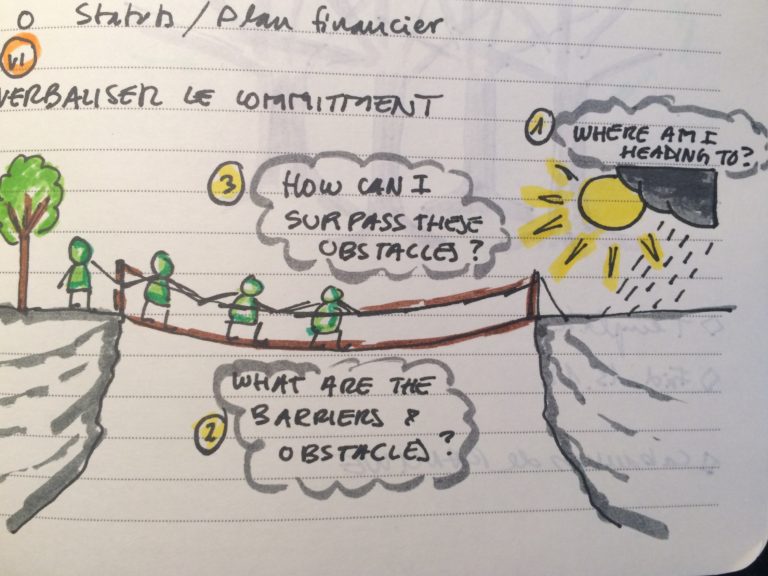 o Statuts / Plan financier
VI
VERBALISER LE COMMITTMENT
1
WHERE AM I
HEADING TO?
3
HOW CAN I
SURPASS THESE
OBSTACLES?
2
WHAT ARE THE
BARRIERS &
OBSTACLES?